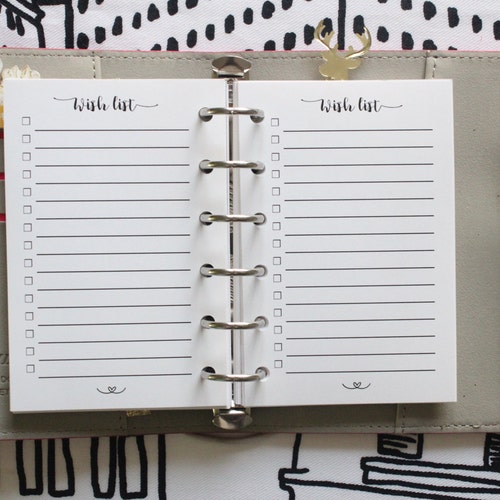 Wish list
Wish list